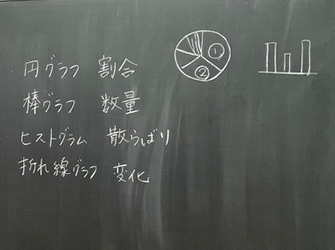 円グラフ 割合
棒グラフ 数量
ヒストグラム 散らばり
折れ線グラフ 変化
①
②